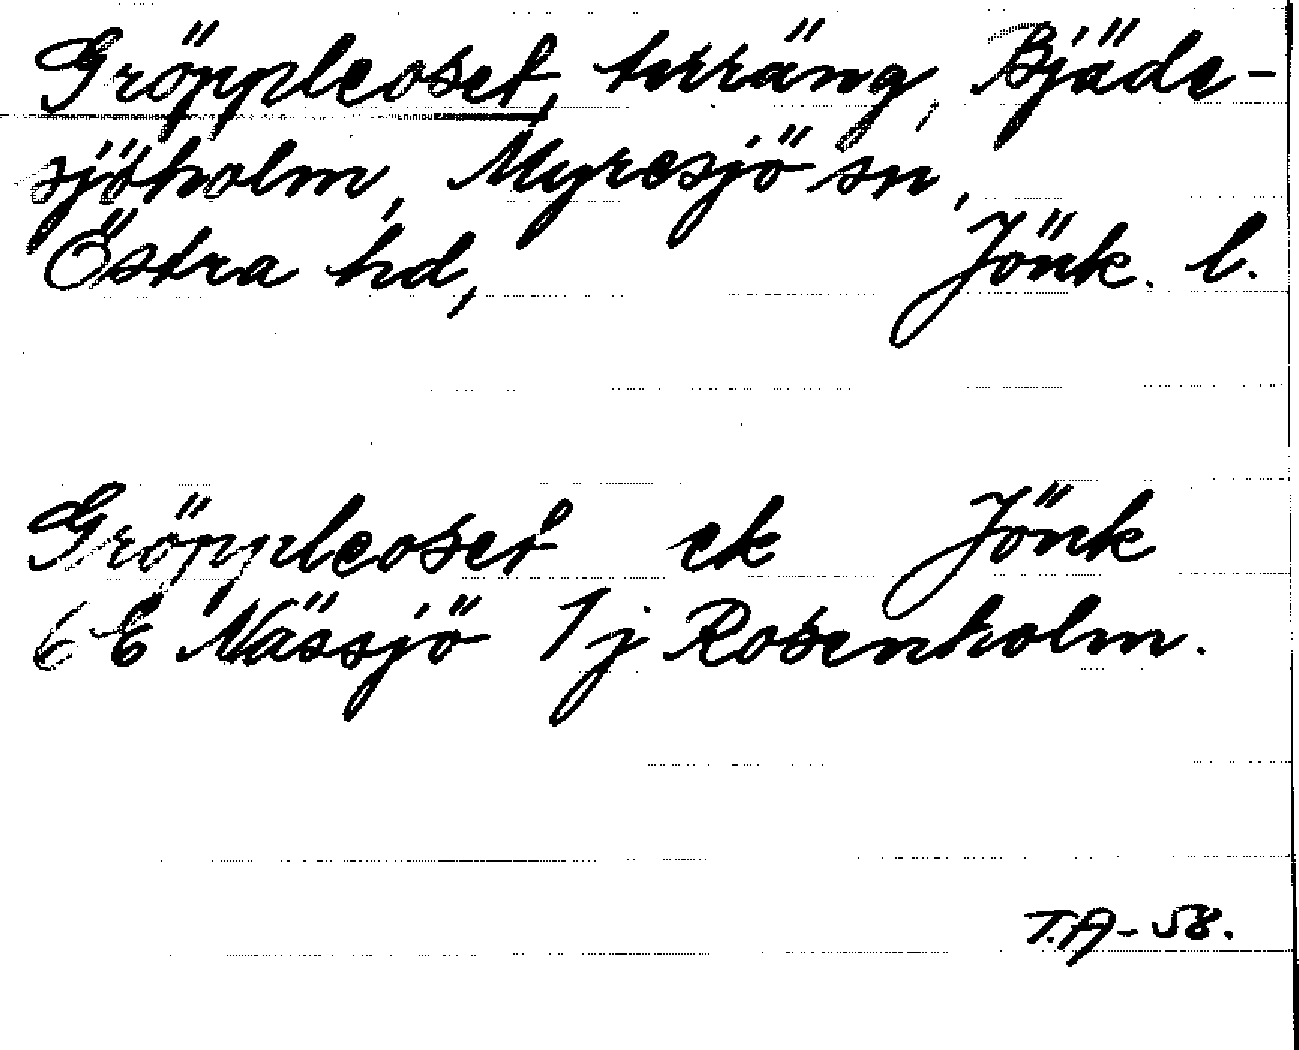 Gröppleoset, terräng, Bjäde-
sjöholm, Myresjö sn,
Östra hd, Jönk. l.
Gröppleoset ek Jönk
6 E Nässjö 1j Rosenholm.
T.A-58.